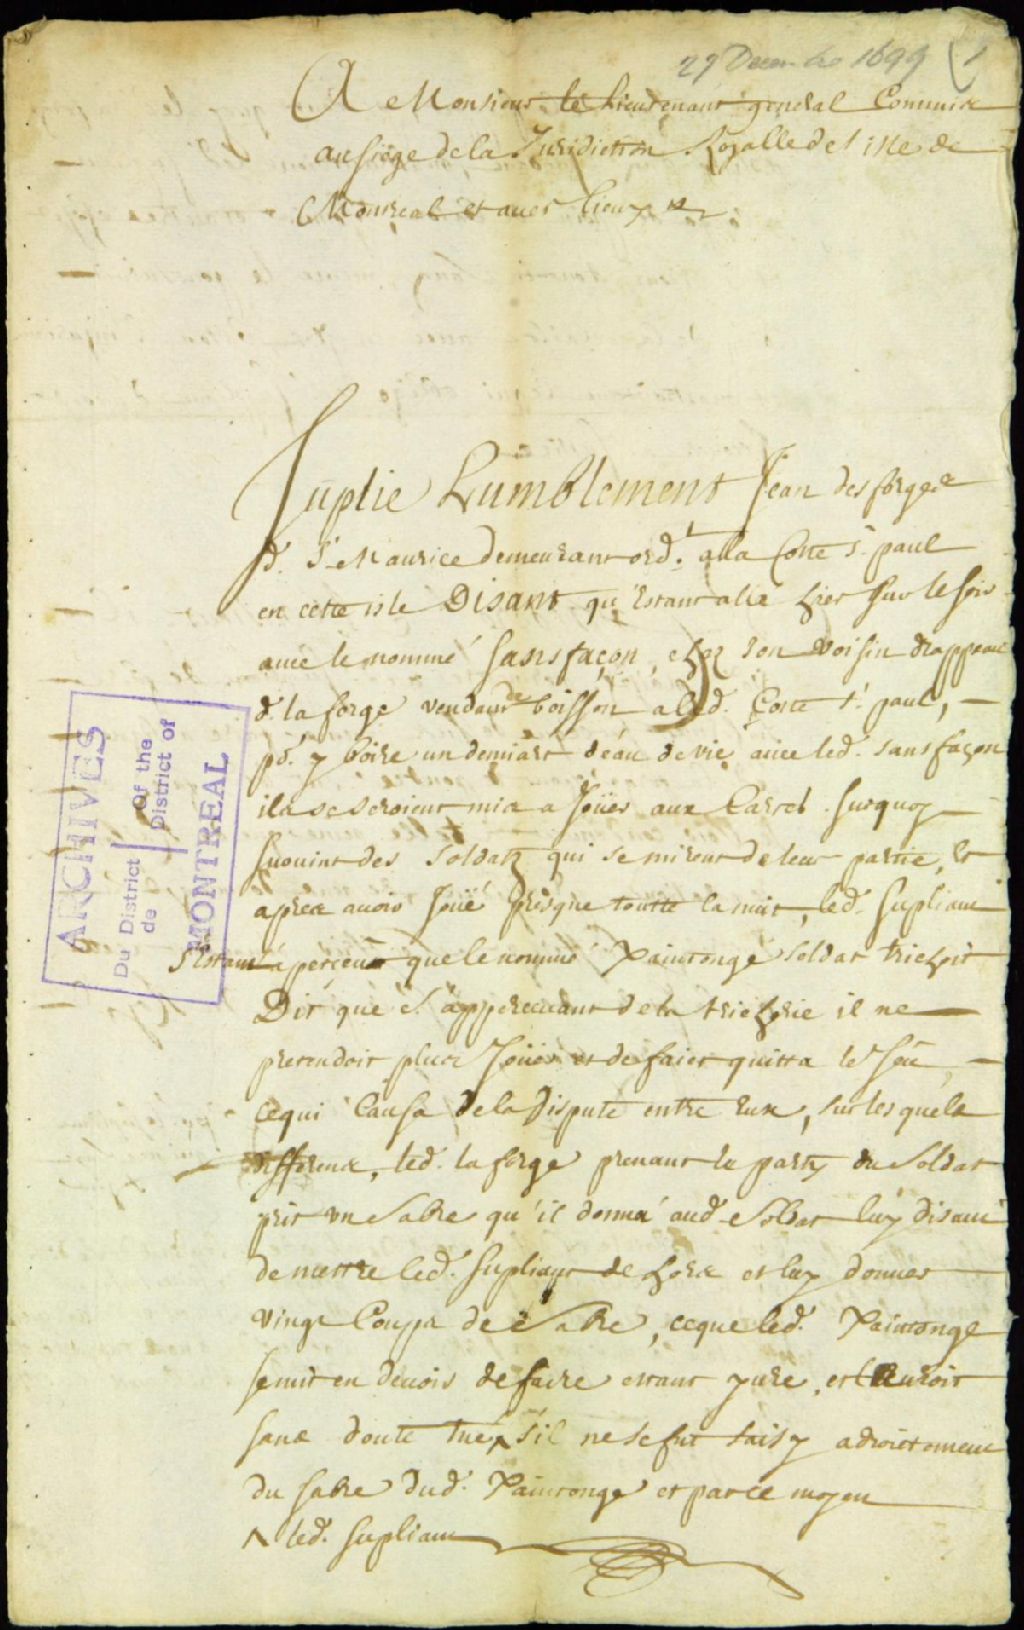 27 Decembre 1699 1
A Monsieur le Lieutenant general Commis
au siege de la Juridiction Royalle de l'isle de
Montreal et aues lieux
Suplie humblement Jean desforges
d. St Maurice demeurant ord.t a la Coste St paul
en cette isle Disant qu'estant allé hier sur le soir
auec le nommé sansfaçon, chez son voisin drappeau
d. la forge vendant de boisson a lad. Coste St paul,
pr. y boire un demiart d'eau de vie auec led. sansfaçon
ils se seroient mis a Joüer aux Cartes. surquoy
suruint des soldats qui se mirent de leur partie, et
apres auoir Joüé presque toutte la nuit, led. supliant
s'estant aperceu que le nommé Xaintonge soldat trichoit
Dit que s'apperceuant de la tricherie il ne
pretendoit plus Joüer et de faict quitta le Jeu,
ce qui Causa de la dispute entre eux, sur lesquels
differens, led. laforge prenant le party du soldat
prit un sabre qu'il donna aud. soldat luy disant
de mettre led. supliant dehors et luy donner
vingt Coupts de sabre, ce que led. Xaintonge
se mit en deuoir de faire estant yure, et l'auroit
sans doute tué ^ s'il ne se fut saisy adroittement
du sabre dud. Xaintonge et par ce moyen
^ led. supliant
ARCHIVES
Du District of the
de District of
MONTREAL